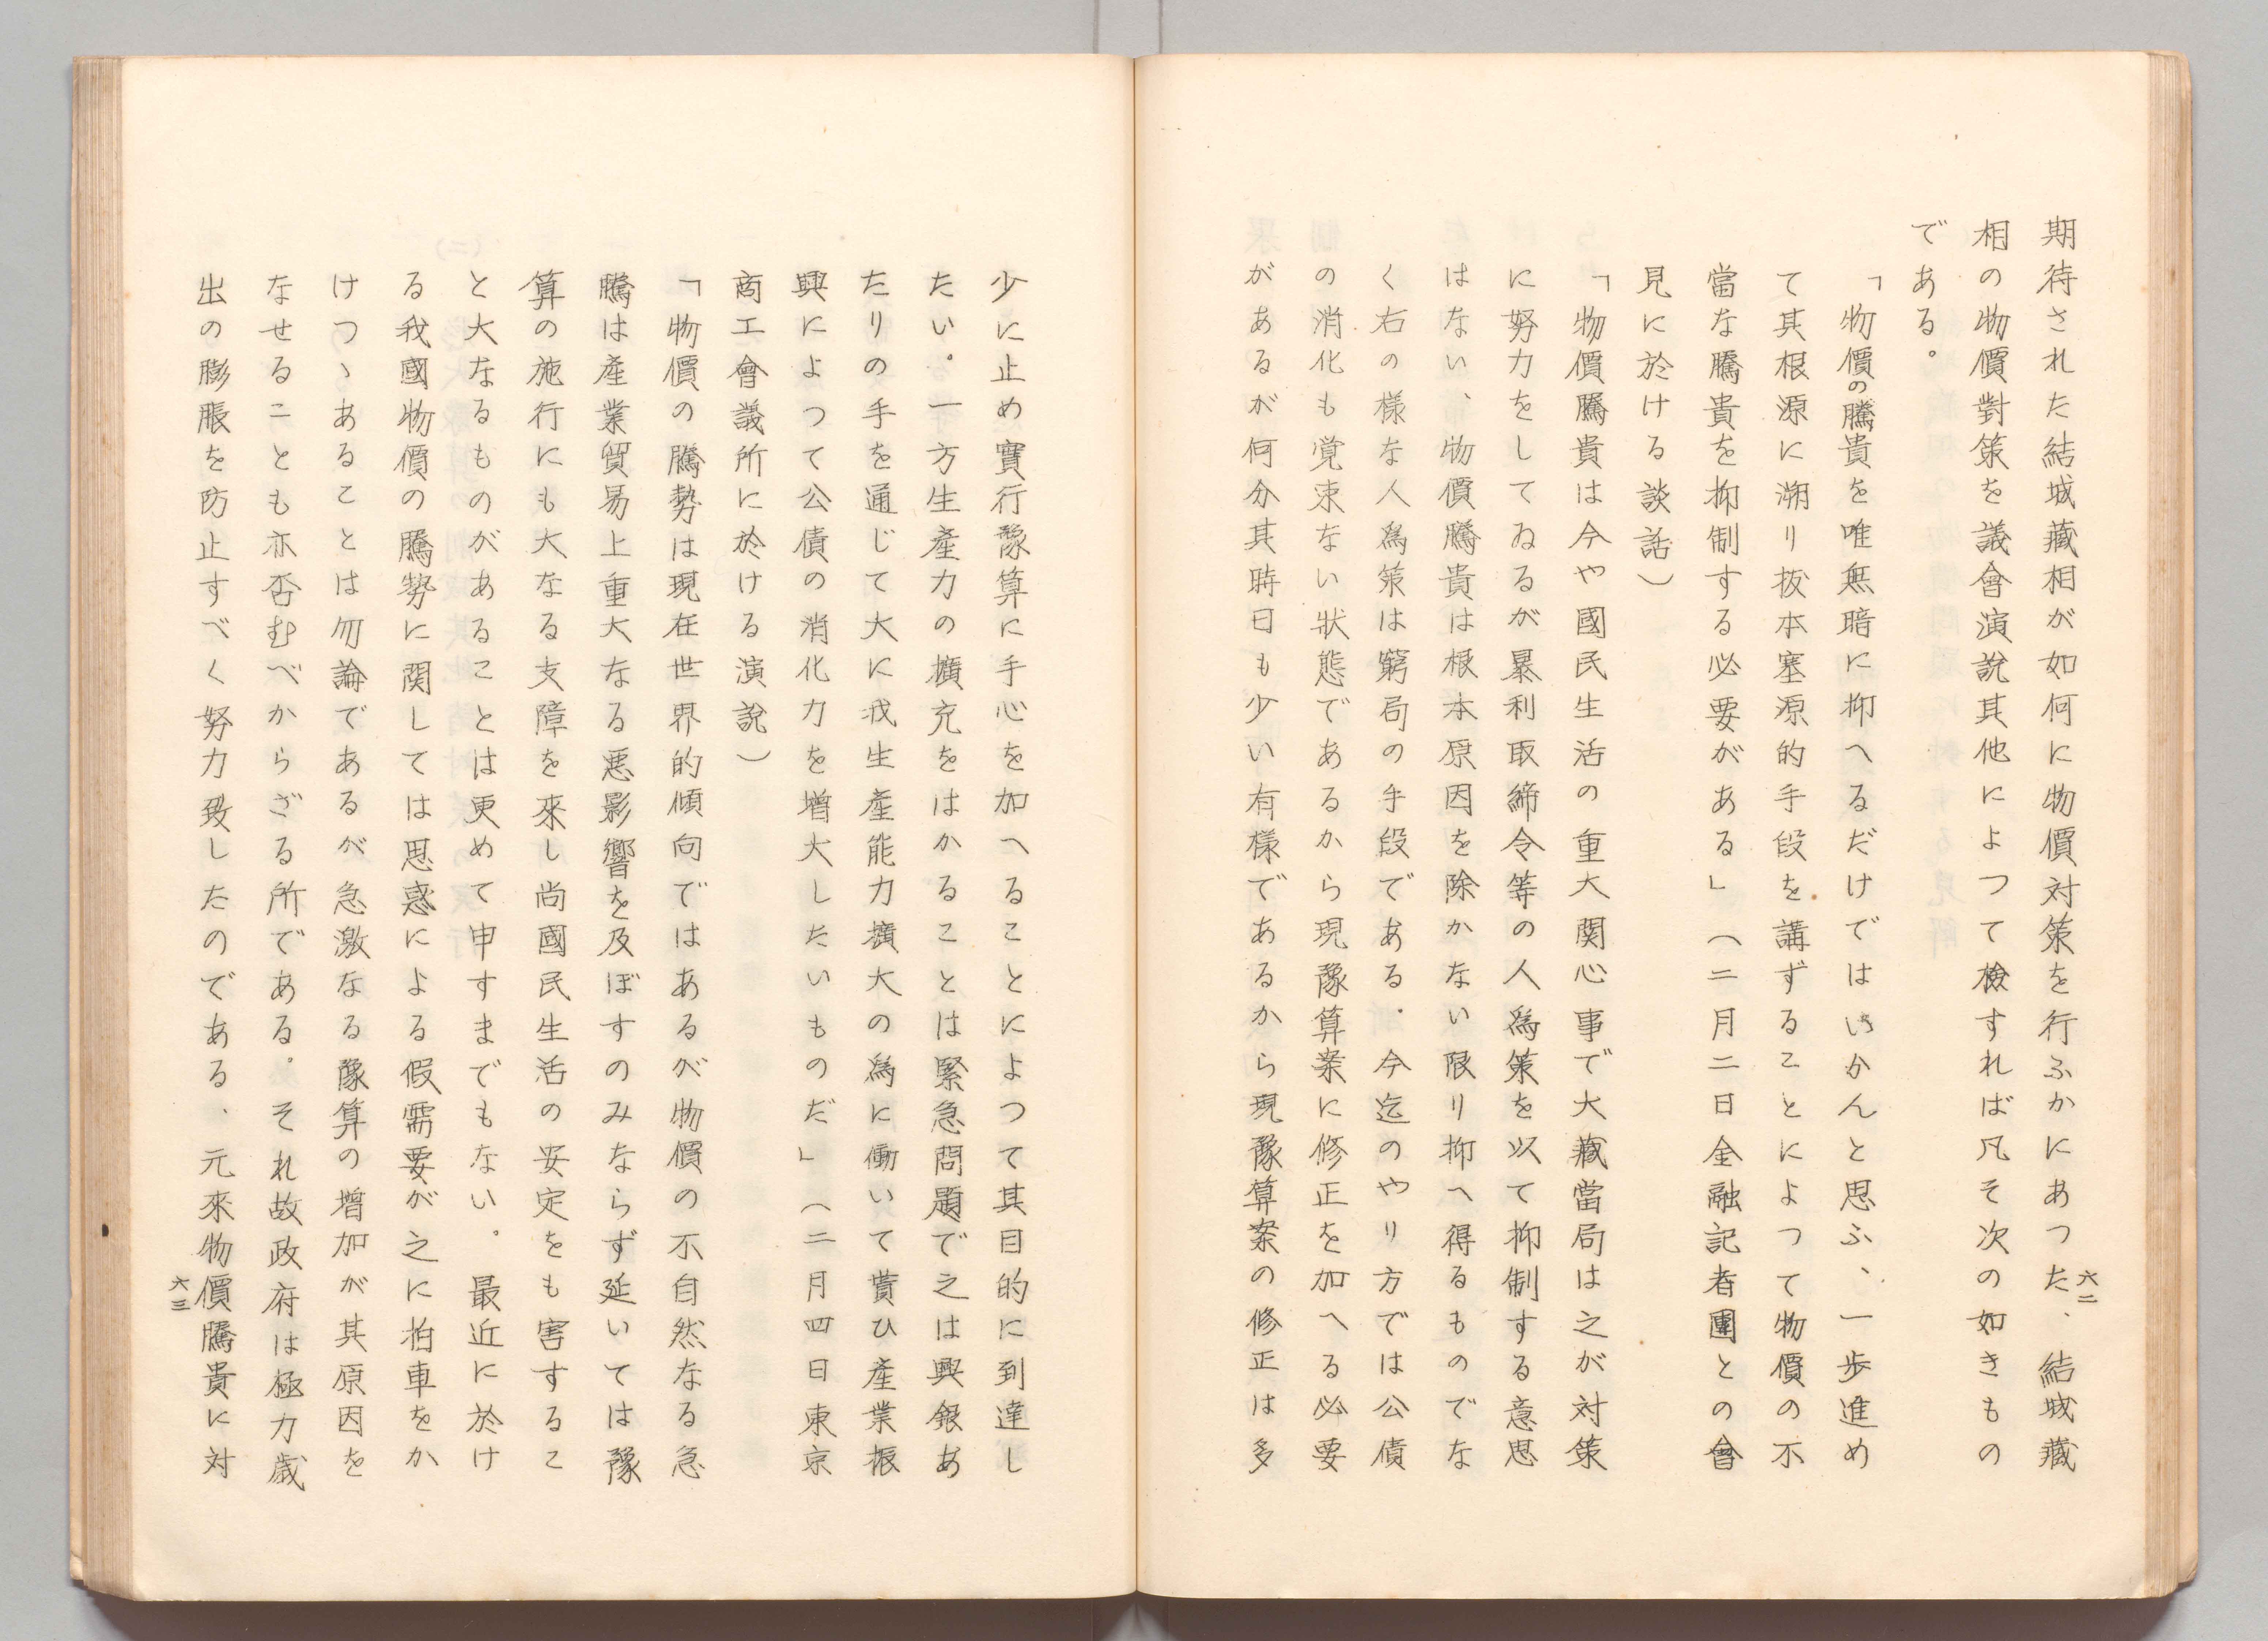 期待された結城藏相が如何に物價対策を行ふかにあつた、結城藏
相の物價對策を議會演說其他によつて檢すれば凡そ次の如きもの
である。
「物價の騰貴を唯無暗に抑へるだけではいかんと思ふ、一歩進め
て其根源に溯り拔本塞源的手段を講ずることによつて物價の不
當な騰貴を抑制する必要がある」（二月二日金融記者團との會
見に於ける談話）
「物價騰貴は今や國民生活の重大関心事で大藏當局は之が対策
に努力をしてゐるが暴利取締令等の人爲策を以て抑制する意思
はない、物價騰貴は根本原因を除かない限り抑へ得るものでな
く右の様な人爲策は窮局の手段である。今迄のやり方では公債
の消化も覚束ない狀態であるから現豫算案に修正を加へる必要
があるが何分其時日も少い有様であるから現豫算案の修正は多
六二
少に止め實行豫算に手心を加へることによつて其目的に到達し
たい。一方生產力の擴充をはかることは緊急問題で之は興銀あ
たりの手を通じて大に我生產能力擴大の爲に働いて貰ひ產業振
興によつて公債の消化力を增大したいものだ」（二月四日東京
商工會議所に於ける演說）
「物價の騰勢は現在世界的傾向ではあるが物價の不自然なる急
騰は產業貿易上重大なる悪影響を及ぼすのみならず延いては豫
算の施行にも大なる支障を來し尚國民生活の安定をも害するこ
と大なるものがあることは更めて申すまでもない。最近に於け
る我國物價の騰勢に関しては思惑による假需要が之に拍車をか
けつヽあることは勿論であるが急激なる豫算の增加が其原因を
なせることも亦否むべからざる所である。それ故政府は極力歲
出の膨脹を防止すべく努力致したのである、元來物價騰貴に対
六三